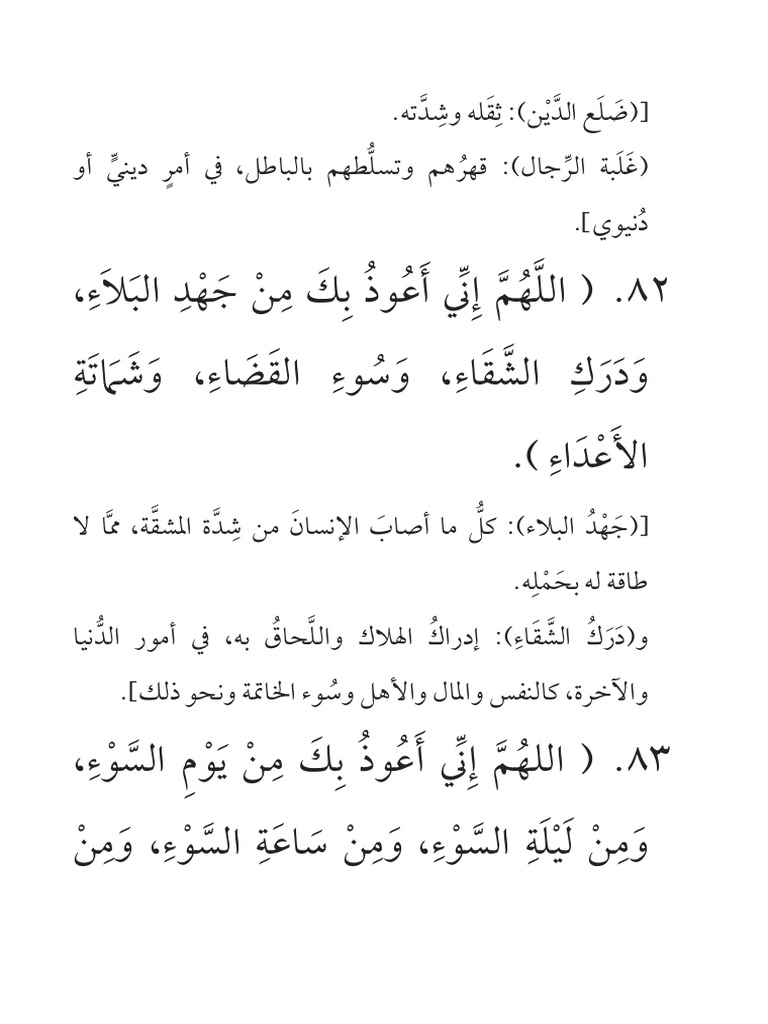 [(ضَلَع الدَّيْن): ثِقَله وشِدَّته.
(غَلَبة الرِّجال): قهرُهم وتسلُّطهم بالباطل، في أمرٍ دينيٍّ أو
دُنيوي].
٨٢. ( اللَّهُمَّ إِنِّي أَعُوذُ بِكَ مِنْ جَهْدِ البَلاَءِ،
وَدَرَكِ الشَّقَاءِ، وَسُوءِ القَضَاءِ، وَشَمَاتَةِ
الأَعْدَاءِ ).
[(جَهْدُ البلاء): كلُّ ما أصابَ الإنسانَ من شِدَّة المشقَّة، ممَّا لا
طاقة له بحَمْلِه.
و(دَرَكُ الشَّقَاءِ): إدراكُ الهلاك واللَّحاقُ به، في أمور الدُّنيا
والآخرة، كالنفس والمال والأهل وسُوء الخاتمة ونحو ذلك].
٨٣. ( اللهُمَّ إِنِّي أَعُوذُ بِكَ مِنْ يَوْمِ السَّوْءِ،
وَمِنْ لَيْلَةِ السَّوْءِ، وَمِنْ سَاعَةِ السَّوْءِ، وَمِنْ